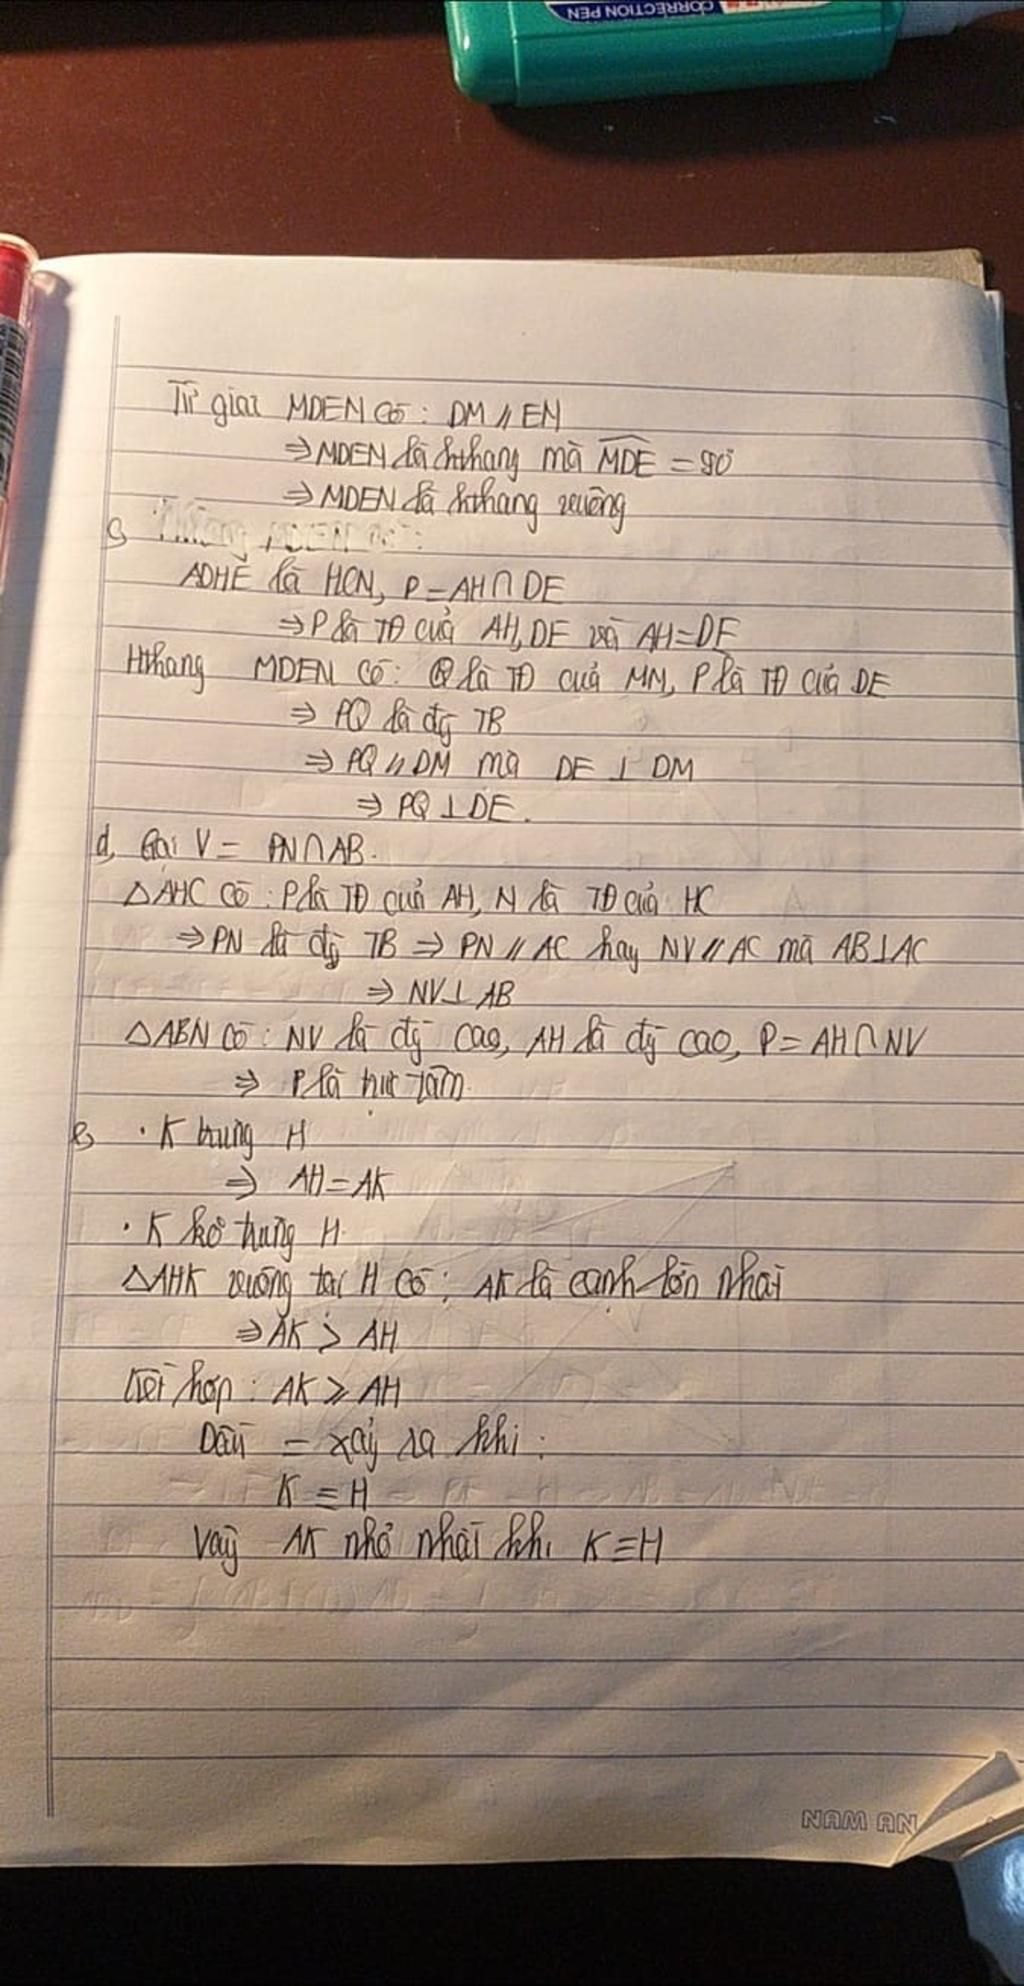 CORRECTION PEN
Tứ giác MDEN có: DM // EN
⇒ MDEN là hthang mà MDE = 90°
⇒ MDEN là hthang vuông
c,
ADHE là HCN, P = AH ∩ DE
⇒ P là TĐ của AH, DE và AH = DE
Hthang MDEN có: Q là TĐ của MN, P là TĐ của DE
⇒ PQ là đg TB
⇒ PQ // DM mà DE ⊥ DM
⇒ PQ ⊥ DE.
d, Gọi V = PN ∩ AB.
△AHC có: P là TĐ của AH, N là TĐ của HC
⇒ PN là đg TB ⇒ PN // AC hay NV // AC mà AB ⊥ AC
⇒ NV ⊥ AB
△ABN có: NV là đg cao, AH là đg cao, P = AH ∩ NV
⇒ P là trực tâm.
e, • K trùng H
⇒ AH = AK
• K ko trùng H.
△AHK vuông tại H có: AK là cạnh lớn nhất
⇒ AK > AH
Kết hợp: AK ≥ AH
Dấu = xảy ra khi:
K ≡ H
Vậy AK nhỏ nhất khi K ≡ H
NAM AN